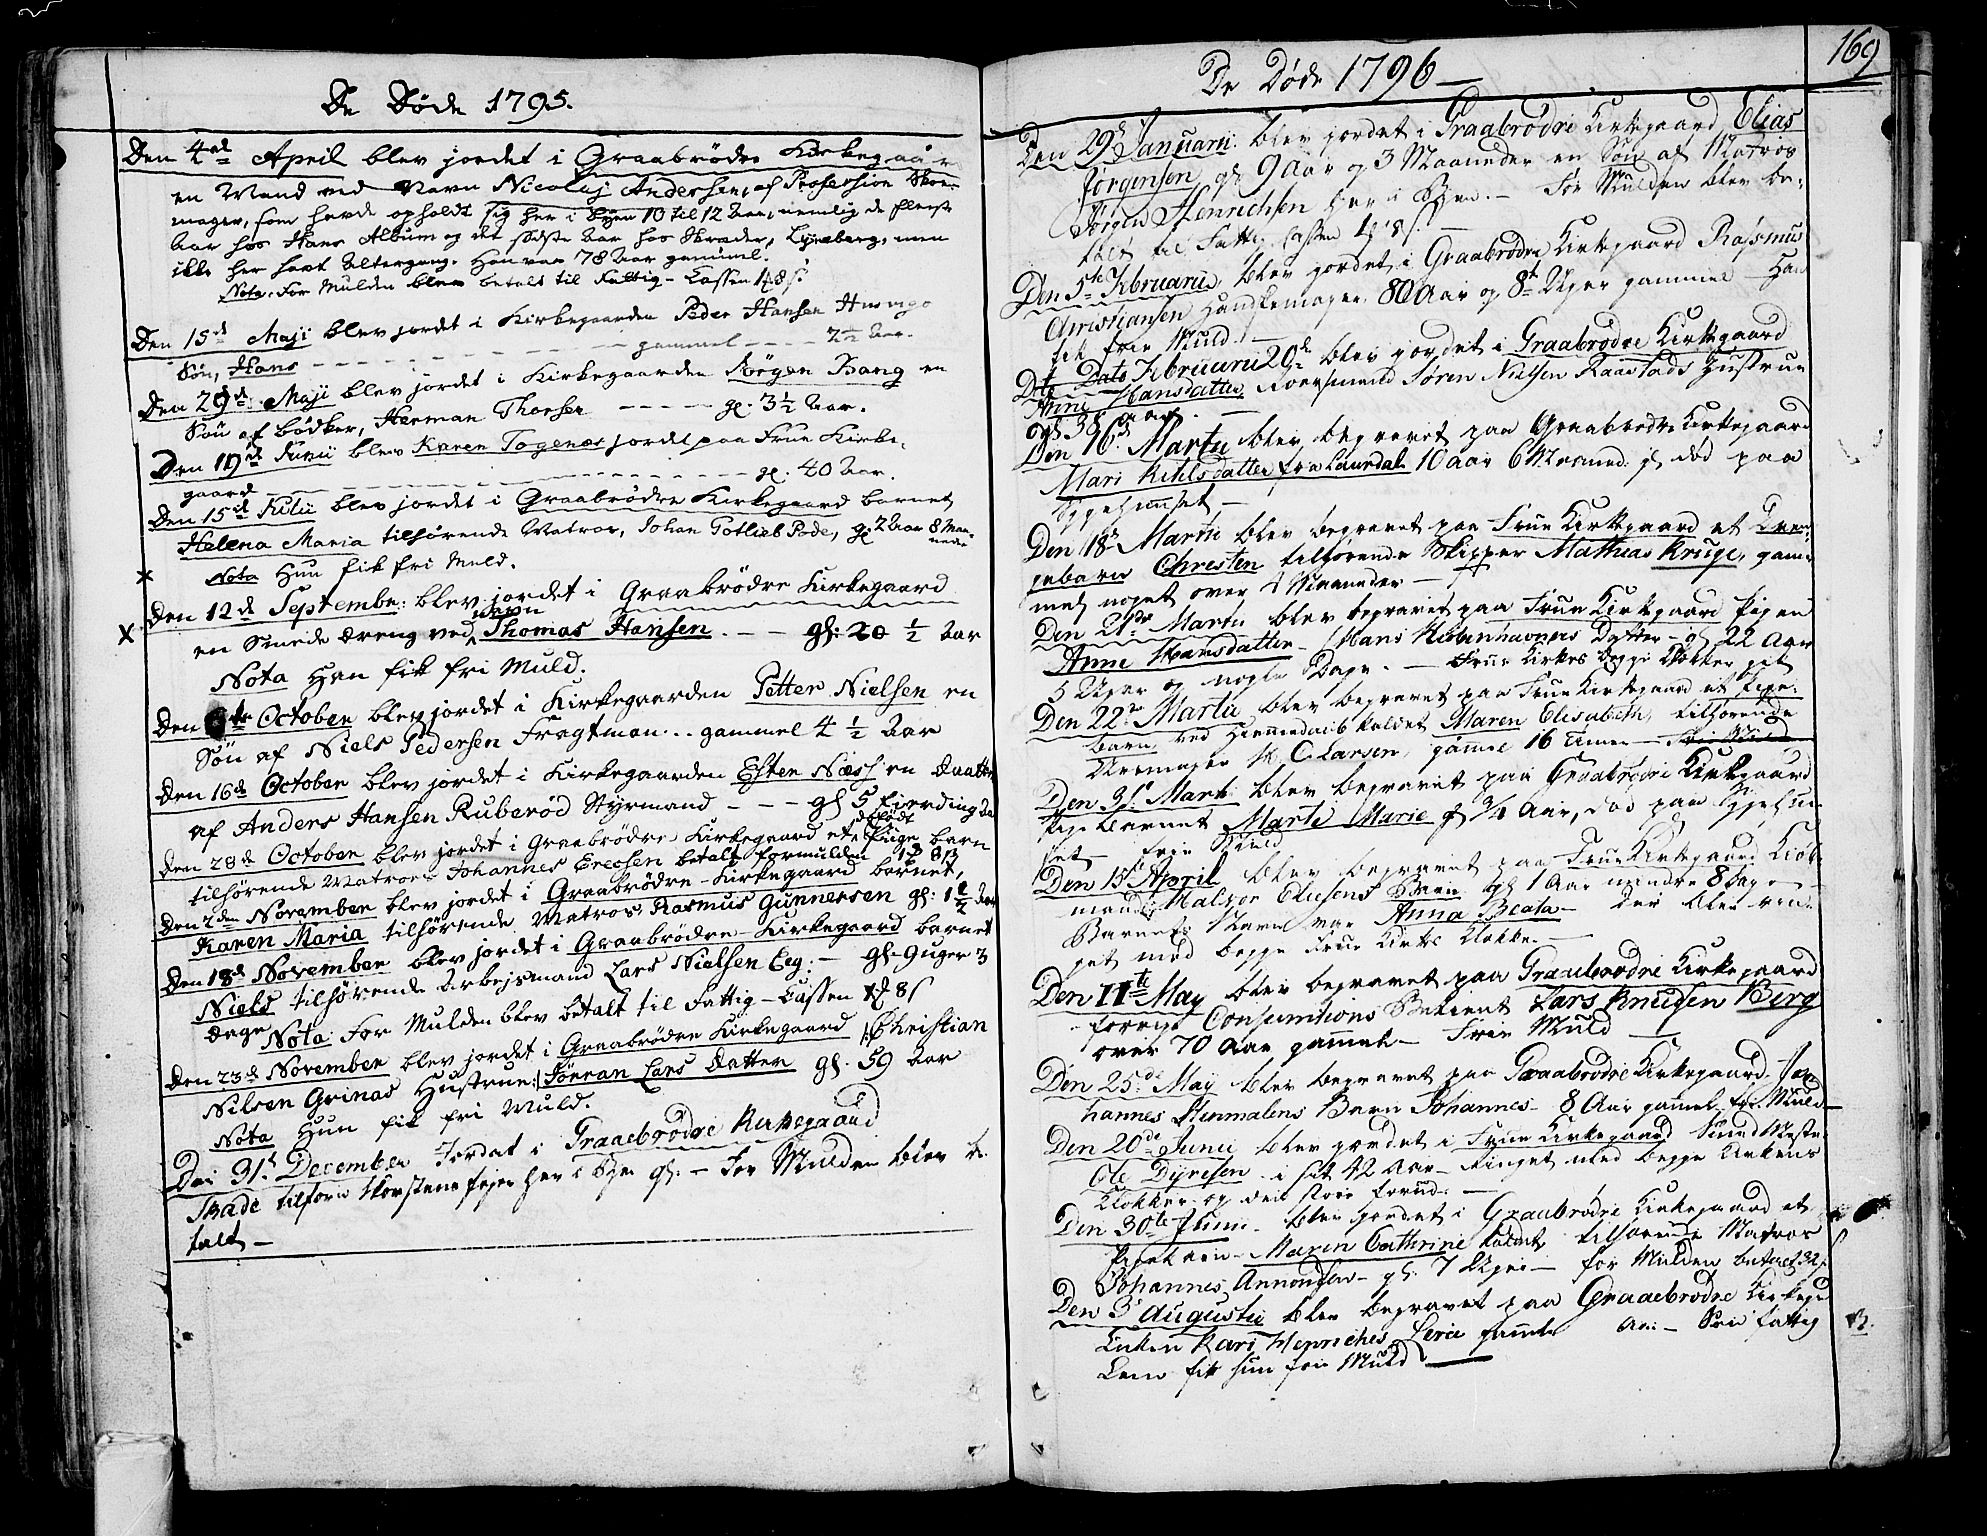 De Døde 1795.
Den 4de April blev jordet i Graabrödre Kirkegaar
en Mand ved Navn Nicolaj Andersen, af Profession Skoe-
mager, som havde opholdt sig her i Byen 10 til 12 Aar, nemlig de fleeste
Aar hos Hans Album og det sidste Aar hos Skræder, Lyneberg, men
ikke her havt Altergang. Han var 78 Aar gammel.
Nota. For Mulden blev betalt til Fattig-Cassen 1 8 s.
Den 15de Maji blev jordet i Kirkegaarden Peder Hansen
Søn, Hans gammel 2½ Aar.
Den 29de Maji blev jordet i Kirkegaarden Jörgen Bang en
Søn af Bödker, Herman Thorsen gl. 3½ Aar.
Den 19de Junii blev Karen Togenæs jordt paa Frue Kirke-
gaard gl. 40 Aar.
Den 15de Julii blev jordet i Graabrödre Kirkegaard barnet
Helena Maria tilhörende Matros, Johan Gotlieb Pode, gl 2 Aar 8 Maa-
neder
Nota Hun fik fri Muld.
x
Den 12de Septembr: blev jordet i Graabrödre Kirkegaard
navn
x
en Smede dreng ved Thomas Hansen. gl: 20 ½ Aar
Nota Han fik fri Muld.
Den 6te October blev jordet i Kirkegaarden Petter Nielsen en
Sön af Niels Pedersen Fragtman gammel 4 ½ Aar
Den 16de October blev jordet i Kirkegaarden Esten Næss en Daatter
af Anders Hansen Ruberöd Styrmand gl 5 fierding
dödf
Den 28de October blev jordet i Graabrödre Kirkegaard et Piige barn
tilhörende Matros Johannes Erecsen betalt formulden 1 8
Den 2den November blev jordet i Graabrödre-Kirkegaard barnet,
Karen Maria tilhörende Matros Rasmus Gunnersen gl: 1½ Aar
Den 18de November blev jordet i Graabrödre-Kirkegaard barnet
Niels tilhörende Arbejsmand Lars Nielsen Eeg: gl. 9 uger 3
dage Nota For Mulden blev betalt til Fattig-Cassen 1 8 s
Den 23de November blev jordet i Graabrödre Kirkegaard Christian
Nilsen Grinas Hustrue: Jöran Lars Datter gl. 59 Aar
Nota Hun fik fri Muld.
Den 31t December Jordat i Graaebrødre Kirkegaard
Brade tilforn Skorstens fejer her i Byen gl: For Mulden blev be-
talt

De Døde 1796
169
Den 29de Januarii blev jordet i Graabrødre Kirkegaard Elias
Jørgensen gl 9 Aar og 3 Maaneder en Søn af Matros
Jørgen Henrichsen her i Byen. For Mulden blev be-
talt til Fattig Cassen 1 8 s.
Den 5te Februarii blev jordet i Graabrødre Kirkegaard Rassmus
Christiansen Handskemager 80 Aar og 8te Uger gammel Han
fik frie Muld.
Dito Dato Februarii 20de blev jordet i Graabrødre Kirkegaard
Anne Hansdatter Søren Nielsen Hustrue
gl 38 aar.
Den 16de Martii blev begravet paa Graabrødre Kirkegaard
Mari Kihlsdatter fra Laurdal 10 aar 6 Maaned: gl død paa
Den 18de Martii blev begravet paa Frue Kirkegaard et Dren-
gebarn Chresten tilhørende Skipper Mathias Kruge, gam-
mel noget over 4 Maaneder
Den 21de Martii blev begravet paa Frue Kirkegaard Pigen
Anne Hansdatter Hans Kiøbenhavners Datter gl 22 Aar
5 Uger og nogle Dage. Frue Kirkes begge Klokker
Den 22de Martii blev begravet paa Frue Kirkegaard et Pige-
barn ved Hiemmedaab kaldet Maren Elisabeth, tilhørende
Uhrmager C Larsen, gamle 16 Timer Fri Muld
Den 31t Martii blev begravet paa Graabrødre Kirkegaard
Pige Barnet Marte Marie gl ¾ Aar, død paa
set frie Muld
Den 15de April blev begravet paa Frue Kirkegaard Kiøb-
mand Halvor Olusens Barn gl 1 Aar mindre 8 Dage
Barnets Navn var Anna Beata Der blev rin-
get med begge Frue Kirke Klokker
Den 11te May blev begravet paa Graaebrødre Kirkegaard
forrige Consumtions Betient Lars Knudsen Berg
over 70 Aar gammel Frie Muld
Den 25de May blev begravet paa Graabrødre Kirkegaard Jo-
hannes Steenmalens Barn Johannes 8 Aar gammel frie Muld
Den 20de Junii blev jordet i Frue Kirkegaard Smed Mester
Ole Dÿresen i sit 42 Aar Ringet med begge Kirkens
Klokker og den store forud.
Den 30te Junii blev jordet i Graabrødre Kirkegaard et
Pigebarn Maren Cathrine kaldet tilhørende Matros
Johannes Amondsen gl. 7 Uger for Mulden betalet 32 s
Den 3de Augustii blev begravet paa Graaebrødre Kirkeg
Enken Kari Henriches Lerie gamle Aar Som fattig
Lem fik hun frie Muld